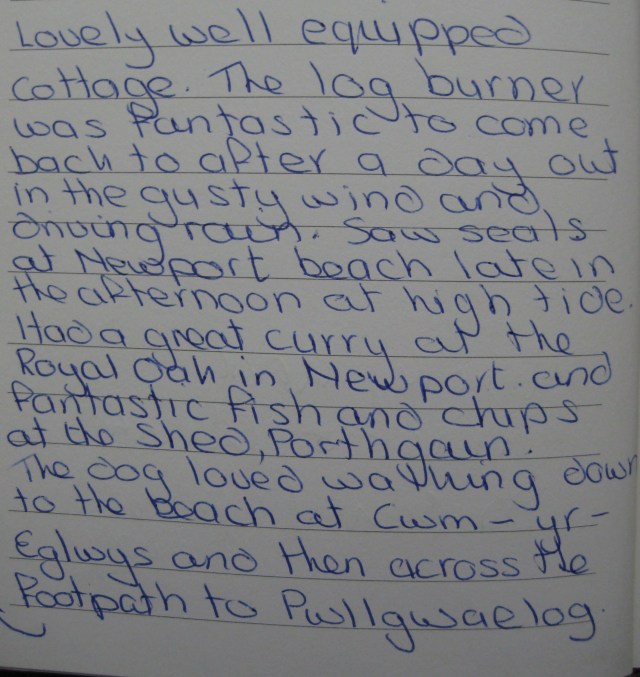 Lovely well equipped
cottage. The log burner
was fantastic to come
back to after a day out
in the gusty wind and
driving rain. Saw seals
at Newport beach late in
the afternoon at high tide.
Had a great curry at the
Royal Oak in Newport. and
fantastic fish and chips
at the Shed, Porthgain.
The dog loved walking down
to the Beach at Cwm-yr-
Eglwys and then across the
footpath to Pwllgwaelog.